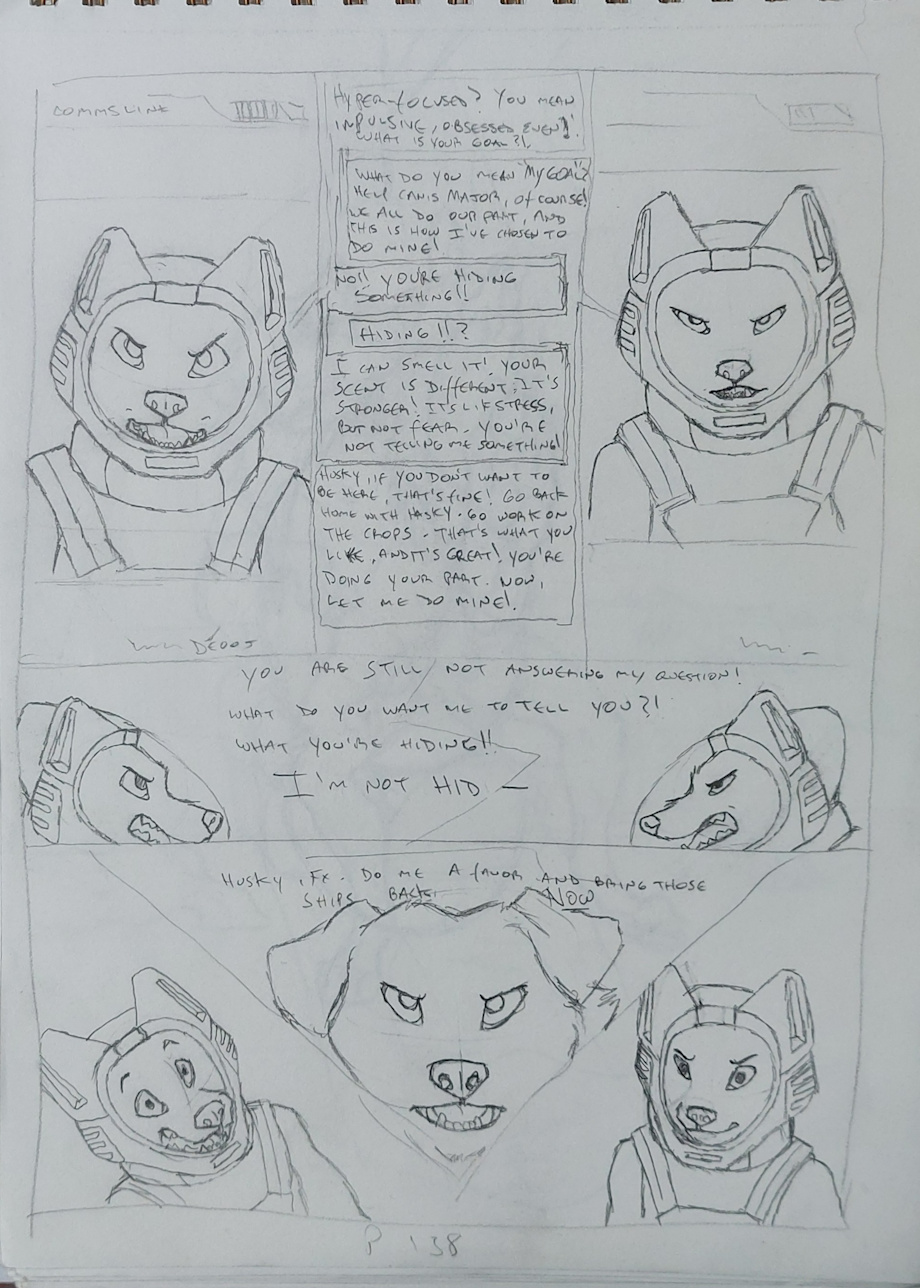 COMMSLINE
HYPER-FOCUSED? YOU MEAN
IMPULSIVE, OBSESSED EVEN!
WHAT IS YOUR GOAL?!
WHAT DO YOU MEAN "MY GOAL"?
HELP CANIS MAJOR, OF COURSE!
WE ALL DO OUR PART, AND
THIS IS HOW I'VE CHOSEN TO
DO MINE!
NO!! YOU'RE HIDING
SOMETHING!!
HIDING!!?
I CAN SMELL IT! YOUR
SCENT IS DIFFERENT; IT'S
STRONGER! IT'S LIK STRESS,
BUT NOT FEAR. YOU'RE
NOT TELLING ME SOMETHING!
HUSKY, IF YOU DON'T WANT TO
BE HERE, THAT'S FINE! GO BACK
HOME WITH HASKY. GO WORK ON
THE CROPS. THAT'S WHAT YOU
LIKE, AND IT'S GREAT! YOU'RE
DOING YOUR PART. NOW,
LET ME DO MINE!
YOU ARE STILL NOT ANSWERING MY QUESTION!
WHAT DO YOU WANT ME TO TELL YOU?!
WHAT YOU'RE HIDING!!
I'M NOT HID —
HUSKY, FX. DO ME A FAVOR AND BRING THOSE
SHIPS BACK. NOW
P 138